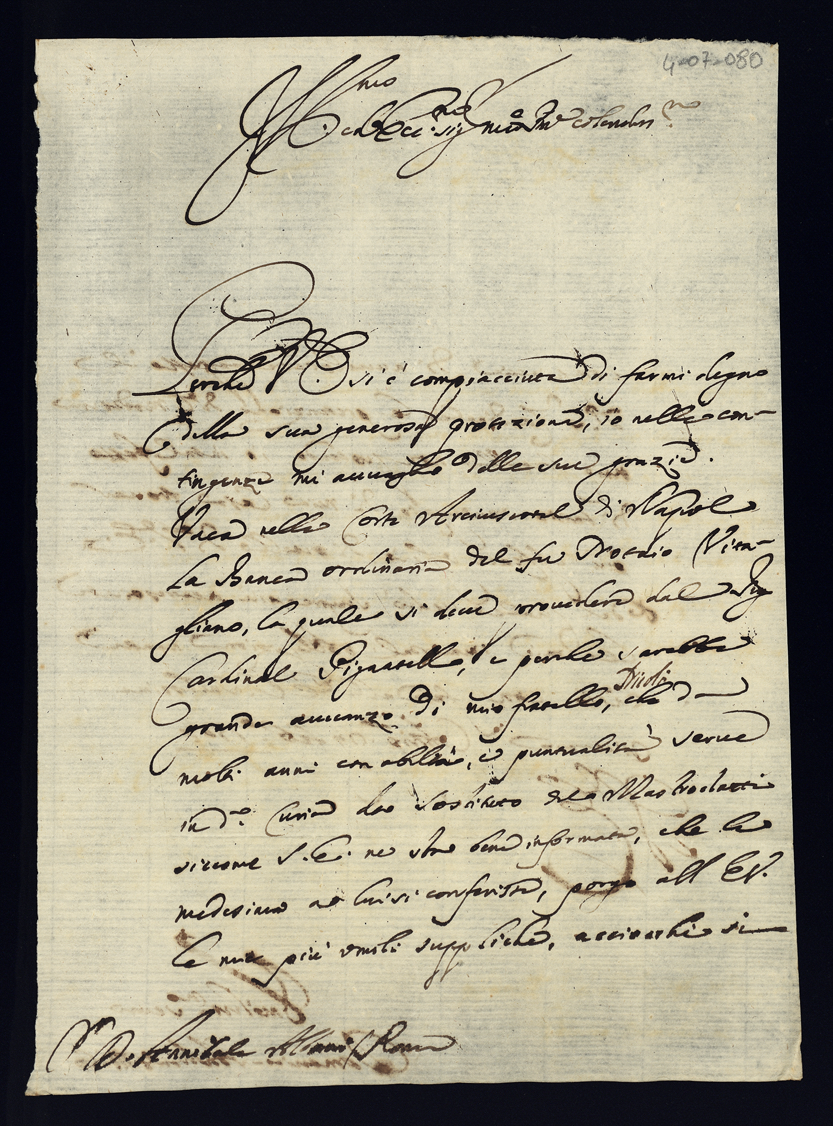 4-07-080
Ill.mo ed Ecc.mo Sig.re P.ne Colendis.mo
Perche V. E. si è compiacciuta di farmi degno
della sua generosa protezione, io nelle con-
tingenze mi avvaglio delle sue grazie.
Vaca nella Corte Arcivescovale di Napoli
la Banca ordinaria del fu Notaio Vita-
gliano, la quale si deve provedere dal Sig.r
Cardinal Pignatelli, e perche sarebbe
grande avvanzo di mio fratello, Nicolò che da
molti anni con abilità, e puntualità serve
in d.a Curia da Sostituto del Mastrodatti
siccome S. E. ne sta bene informata, che la
medesima a lui si conferisse, porgo all' E.V.
le mie più umili suppliche, acciocchè si
D. Annibale Albani / Roma